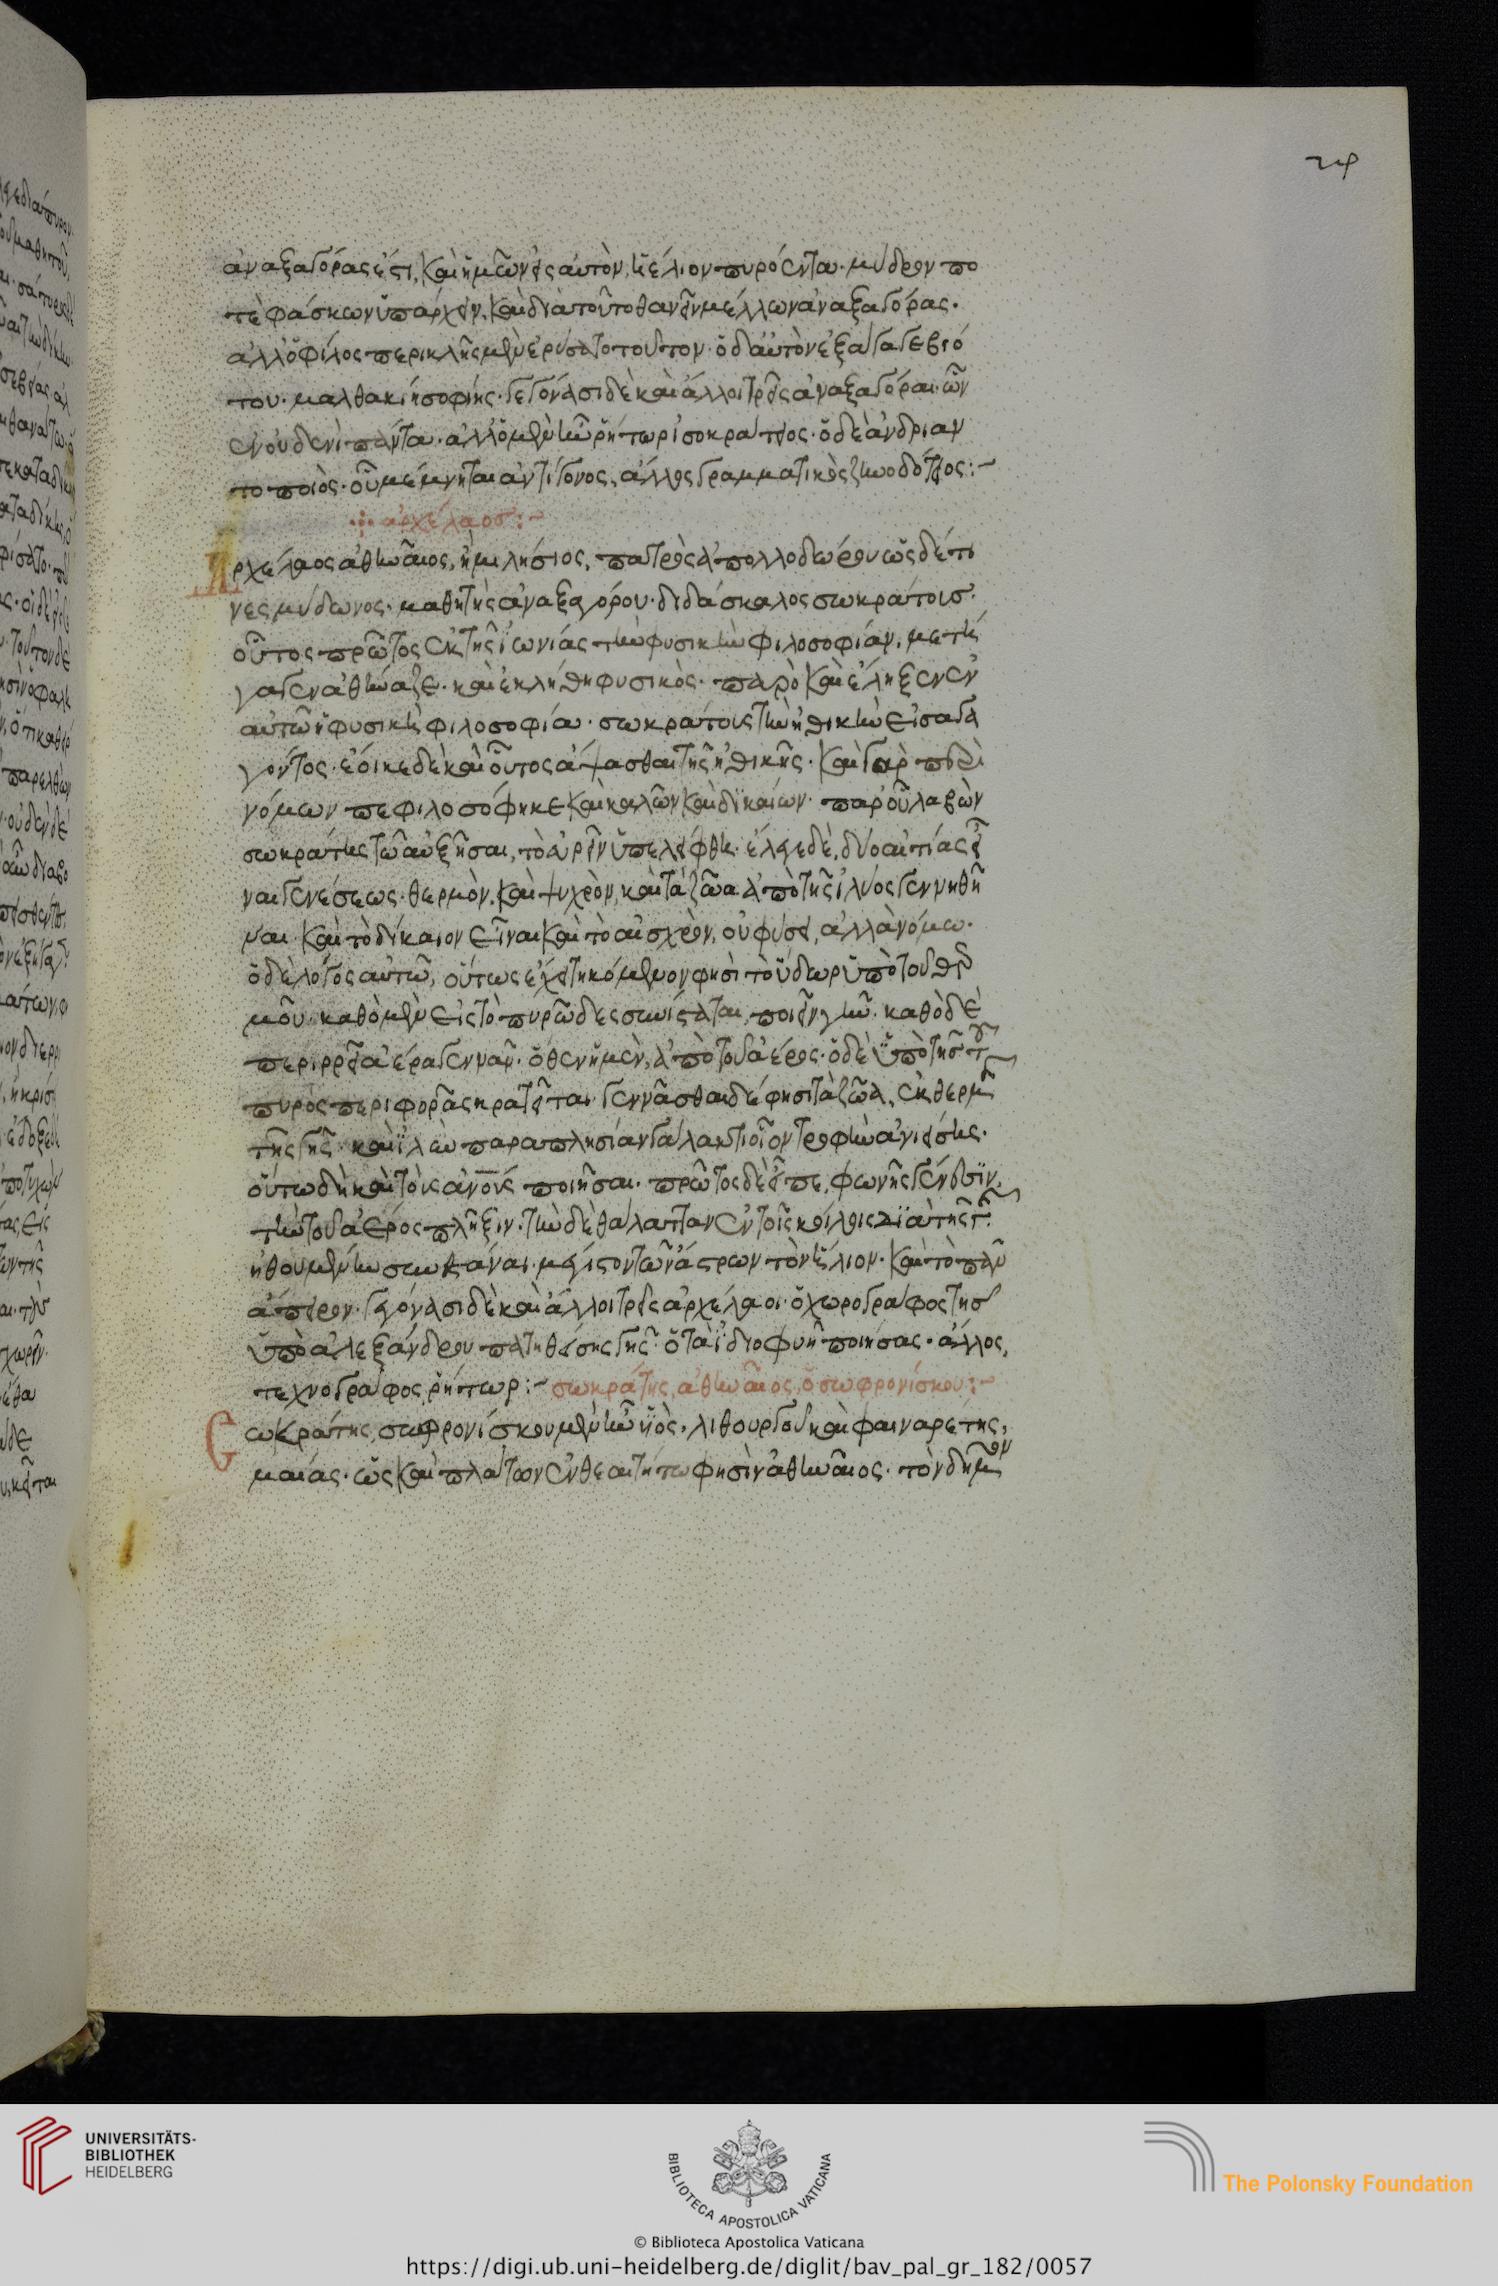 24
ἀναξαγόρας ἐστὶ, καὶ ἡμῶν εἰς αὐτὸν, ἠέλιον πυρόεντα μύδρον πο
τὲ φάσκων ὑπάρχειν, καὶ διὰ τοῦτο θανεῖν μέλλων ἀναξαγόρας.
ἀλλ' ὁ φίλος περικλῆς μὲν ἐρύσατο τοῦτον· ὁ δ' αὐτὸν ἐξάγαγε βιό
του· μαλθακίη σοφίης· γεγόνασι δὲ καὶ ἄλλοι τρεῖς ἀναξαγόραι· ὧν
ἐν οὐδενὶ πάντα· ἀλλ' ὁ μὲν ἦν ῥήτωρ ἰσοκράτειος· ὁ δὲ ἀνδριαν
τοποιὸς· οὗ μέμνηται ἀντίγονος, ἄλλος γραμματικὸς ζηνοδότειος:~
ἀρχέλαος:~
Ἀρχέλαος ἀθηναῖος, ἢ μιλήσιος, πατρὸς ἀπολλοδώρου ὡς δέ τι
νες μύδωνος· μαθητὴς ἀναξαγόρου· διδάσκαλος σωκράτους·
οὗτος πρῶτος ἐκ τῆς ἰωνίας τὴν φυσικὴν φιλοσοφίαν, μετή
γαγεν ἀθήναζε· καὶ ἐκλήθη φυσικὸς· παρὸ καὶ ἔληξεν ἐν
αὐτῶ ἡ φυσικὴ φιλοσοφία· σωκράτους τὴν ἠθικὴν εἰσαγα
γόντος· ἔοικε δὲ καὶ οὗτος ἅψασθαι τῆς ἠθικῆς· καὶ γὰρ περὶ
νόμων πεφιλοσόφηκε καὶ καλῶν καὶ δικαίων· παρ' οὗ λαβὼν
σωκράτης τῶ αὐξῆσαι, τὸ εὑρεῖν ὑπελήφθη· ἔλεγε δὲ, δύο αἰτίας εἶ
ναι γενέσεως· θερμὸν, καὶ ψυχρὸν, καὶ τὰ ζῶα ἀπὸ τῆς ἰλύος γεννηθῆ
ναι· καὶ τὸ δίκαιον εἶναι καὶ τὸ αἰσχρὸν, οὐ φύσει, ἀλλὰ νόμω·
ὁ δὲ λόγος αὐτῶ, οὕτως ἔχει· τηκόμενον φησὶ τὸ ὕδωρ ὑπὸ τοῦ θερ
μοῦ· καθὸ μὲν εἰς τὸ πυρῶδες συνίσταται, ποιεῖν γῆν· καθὸ δὲ
περιρρεῖ ἀέρα γεννᾶν· ὅθεν ἡ μὲν, ἀπὸ τοῦ ἀέρος· ὁ δὲ ὑπὸ τῆς τοῦ
πυρὸς περιφορᾶς κρατεῖται· γεννᾶσθαι δέ φησι τὰ ζῶα, ἐκ θερμῆς
τῆς γῆς· καὶ ἰλὺν παραπλησίαν γάλακτι οἷον τροφὴν ἀνιείσης·
οὕτω δὴ καὶ τοὺς ἀνους ποιῆσαι· πρῶτος δὲ εἶπε, φωνῆς γένεσιν,
τὴν τοῦ ἀέρος πλῆξιν· τὴν δὲ θάλατταν ἐν τοῖς κοίλοις διὰ τῆς γῆς
ἠθουμένην συνεστάναι· μέγιστον τῶν ἄστρων τὸν ἥλιον· καὶ τὸ πᾶν
ἄπειρον· γεγόνασι δὲ καὶ ἄλλοι τρεῖς ἀρχέλαοι· ὁ χωρογράφος τῆς
ὑπὸ ἀλεξάνδρου πατηθείσης γῆς· ὁ τὰ ἰδιοφυῆ ποιήσας· ἄλλος,
τεχνογράφος, ῥήτωρ:~ σωκράτης, ἀθηναῖος, ὁ σωφρονίσκου:~
Σωκράτης, σωφρονίσκου μὲν ἦν υἱὸς, λιθουργοῦ καὶ φαιναρέτης,
μαίας· ὡς καὶ πλάτων ἐν θεαιτήτω φησὶν ἀθηναῖος· τὸν δῆμον
UNIVERSITÄTS-
BIBLIOTHEK
HEIDELBERG
BIBLIOTECA APOSTOLICA VATICANA
The Polonsky Foundation
© Biblioteca Apostolica Vaticana
https://digi.ub.uni-heidelberg.de/diglit/bav_pal_gr_182/0057